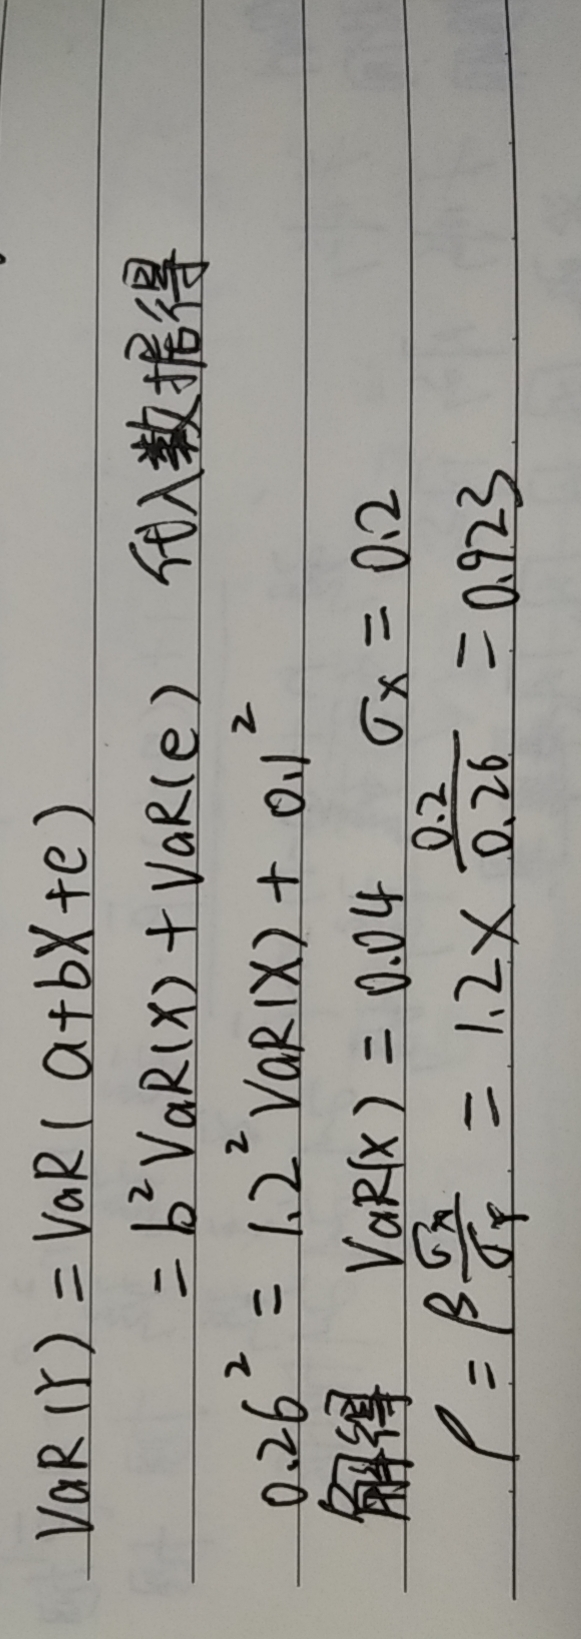 VaR(Y) = VaR(a+bX+e)
= b²VaR(X) + VaR(e) 代入数据得
0.26² = 1.2² VaR(X) + 0.1²
解得 VaR(x) = 0.04 σx = 0.2
ρ = β σx/σY = 1.2 × 0.2/0.26 = 0.923